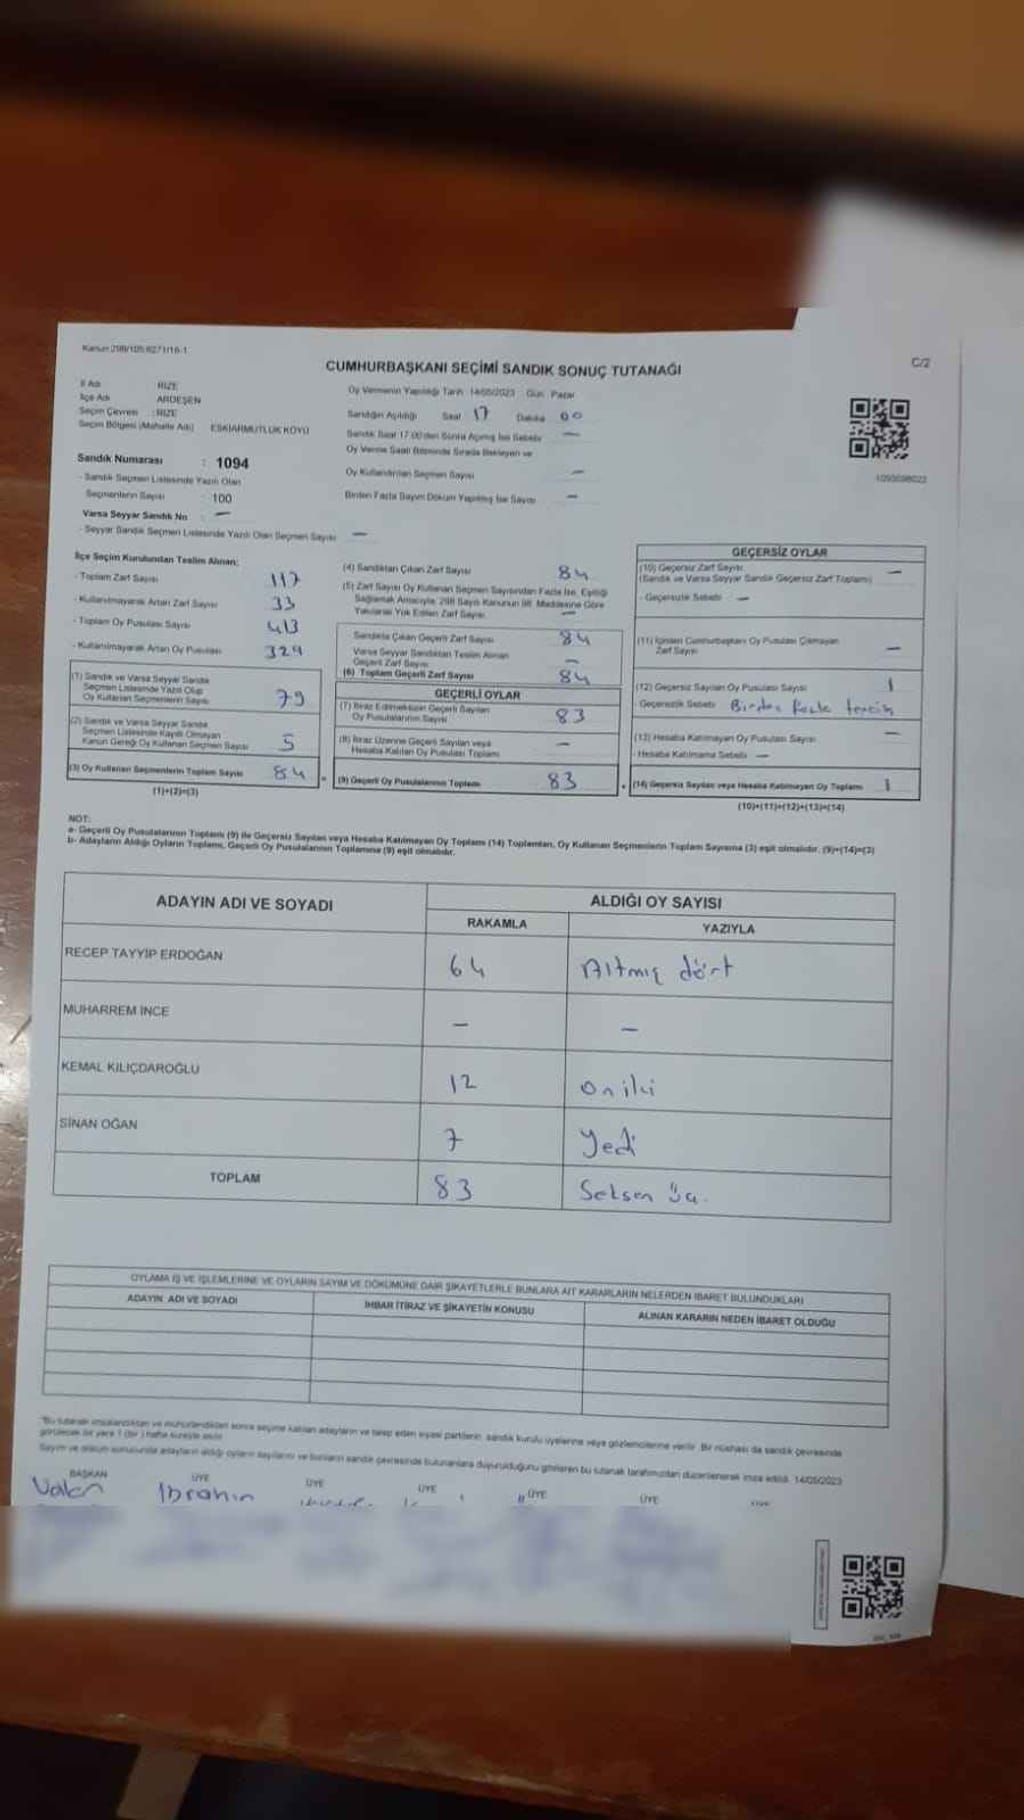 Kanun:298/105;6271/16-1
CUMHURBAŞKANI SEÇİMİ SANDIK SONUÇ TUTANAĞI
C/2
İl Adı RİZE
İlçe Adı ARDEŞEN
Seçim Çevresi : RİZE
Seçim Bölgesi (Mahalle Adı) ESKİARMUTLUK KÖYÜ
Oy Vermenin Yapıldığı Tarih 14/05/2023 Gün Pazar
Sandığın Açıldığı Saat 17 Dakika 00
Sandık Saat 17:00'den Sonra Açılmış İse Sebebi —
Oy Verme Saati Bitiminde Sırada Bekleyen ve
Oy Kullandırılan Seçmen Sayısı —
Birden Fazla Sayım Döküm Yapılmış İse Sayısı —
Sandık Numarası : 1094
- Sandık Seçmen Listesinde Yazılı Olan
Seçmenlerin Sayısı 100
Varsa Seyyar Sandık No : —
- Seyyar Sandık Seçmen Listesinde Yazılı Olan Seçmen Sayısı —
İlçe Seçim Kurulundan Teslim Alınan;
- Toplam Zarf Sayısı 117
- Kullanılmayarak Artan Zarf Sayısı 33
- Toplam Oy Pusulası Sayısı 413
- Kullanılmayarak Artan Oy Pusulası 329
(1) Sandık ve Varsa Seyyar Sandık
Seçmen Listesinde Yazılı Olup
Oy Kullanan Seçmenlerin Sayısı 79
(2) Sandık ve Varsa Seyyar Sandık
Seçmen Listesinde Kayıtlı Olmayan
Kanun Gereği Oy Kullanan Seçmen Sayısı 5
(3) Oy Kullanan Seçmenlerin Toplam Sayısı 84
(1)+(2)=(3)
(4) Sandıktan Çıkan Zarf Sayısı 84
(5) Zarf Sayısı Oy Kullanan Seçmen Sayısından Fazla İse, Eşitliği
Sağlamak Amacıyla, 298 Sayılı Kanunun 98. Maddesine Göre
Yakılarak Yok Edilen Zarf Sayısı —
Sandıkta Çıkan Geçerli Zarf Sayısı 84
Varsa Seyyar Sandıktan Teslim Alınan
Geçerli Zarf Sayısı —
(6) Toplam Geçerli Zarf Sayısı 84
GEÇERLİ OYLAR
(7) İtiraz Edilmeksizin Geçerli Sayılan
Oy Pusulalarının Sayısı 83
(8) İtiraz Üzerine Geçerli Sayılan veya
Hesaba Katılan Oy Pusulası Toplamı —
(9) Geçerli Oy Pusulalarının Toplamı 83
GEÇERSİZ OYLAR
(10) Geçersiz Zarf Sayısı —
(Sandık ve Varsa Seyyar Sandık Geçersiz Zarf Toplamı)
- Geçersizlik Sebebi —
(11) İçinden Cumhurbaşkanı Oy Pusulası Çıkmayan
Zarf Sayısı —
(12) Geçersiz Sayılan Oy Pusulası Sayısı 1
Geçersizlik Sebebi Birden fazla tercih
(13) Hesaba Katılmayan Oy Pusulası Sayısı —
- Hesaba Katılmama Sebebi —
(14) Geçersiz Sayılan veya Hesaba Katılmayan Oy Toplamı 1
(10)+(11)+(12)+(13)=(14)
NOT:
a- Geçerli Oy Pusulalarının Toplamı (9) ile Geçersiz Sayılan veya Hesaba Katılmayan Oy Toplamı (14) Toplamları, Oy Kullanan Seçmenlerin Toplam Sayısına (3) eşit olmalıdır. (9)+(14)=(3)
b- Adayların Aldığı Oyların Toplamı, Geçerli Oy Pusulalarının Toplamına (9) eşit olmalıdır.
ADAYIN ADI VE SOYADI
ALDIĞI OY SAYISI
RAKAMLA YAZIYLA
RECEP TAYYİP ERDOĞAN 64 Altmış dört
MUHARREM İNCE — —
KEMAL KILIÇDAROĞLU 12 on iki
SİNAN OĞAN 7 Yedi
TOPLAM 83 Seksen üç.
OYLAMA İŞ VE İŞLEMLERİNE VE OYLARIN SAYIM VE DÖKÜMÜNE DAİR ŞİKAYETLERLE BUNLARA AİT KARARLARIN NELERDEN İBARET BULUNDUKLARI
ADAYIN ADI VE SOYADI İHBAR İTİRAZ VE ŞİKAYETİN KONUSU ALINAN KARARIN NEDEN İBARET OLDUĞU
*Bu tutanak imzalandıktan ve mühürlendikten sonra seçime katılan adayların ve talep eden siyasi partilerin, sandık kurulu üyelerine veya gözlemcilerine verilir. Bir nüshası da sandık çevresinde
görülecek bir yere 1 (bir) hafta süreyle asılır.
Sayım ve döküm sonucunda adayların aldığı oyların sayılarını ve bunların sandık çevresinde bulunanlara duyurulduğunu gösteren bu tutanak tarafımızdan düzenlenerek imza edildi. 14/05/2023
BAŞKAN ÜYE ÜYE ÜYE ÜYE ÜYE ÜYE
İbrahim